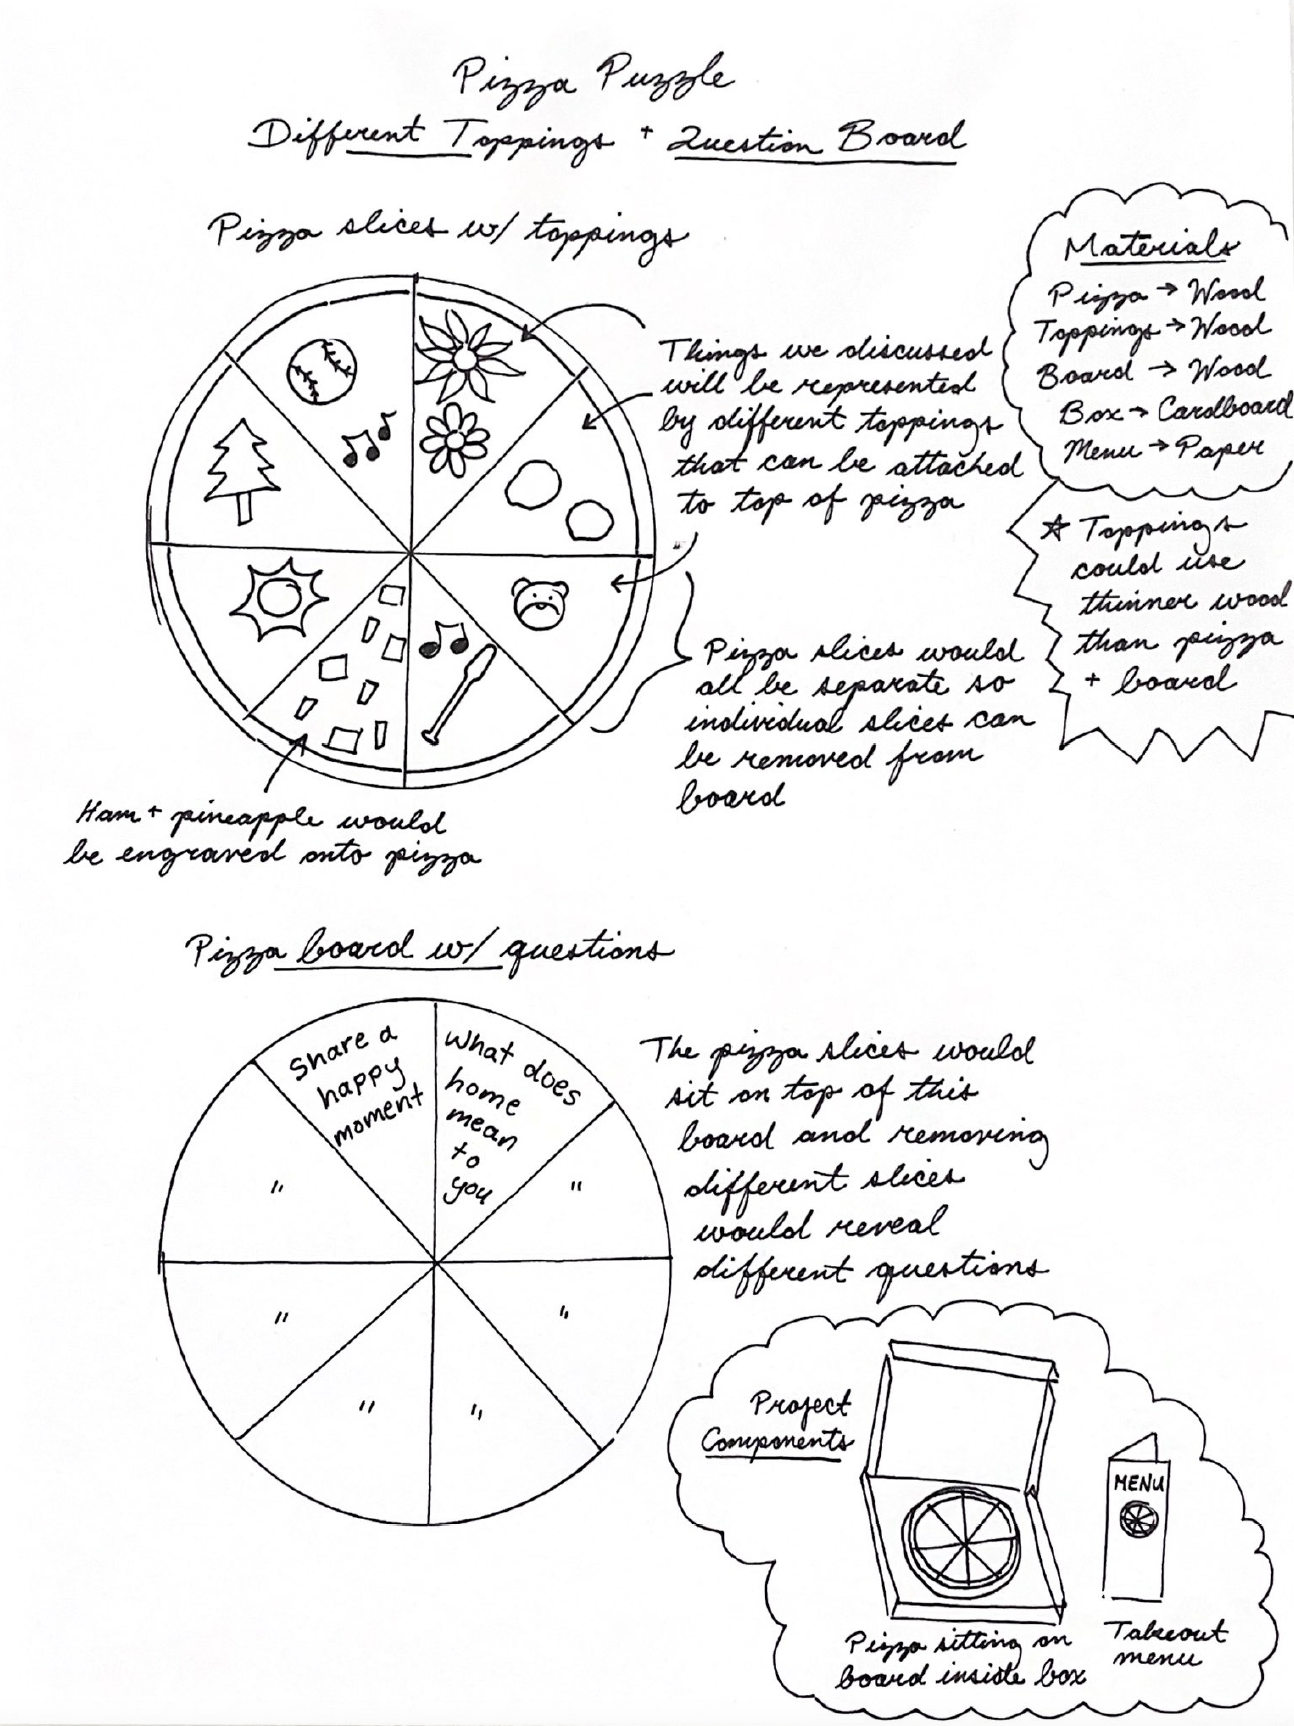 Pizza Puzzle
Different Toppings + Question Board
Pizza slices w/ toppings
Things we discussed
will be represented
by different toppings
that can be attached
to top of pizza
Materials
Pizza → Wood
Toppings → Wood
Board → Wood
Box → Cardboard
Menu → Paper
☆ Toppings
could use
thinner wood
than pizza
+ board
Pizza slices would
all be separate so
individual slices can
be removed from
board
Ham + pineapple would
be engraved onto pizza
Pizza board w/ questions
Share a
happy
moment
What does
home
mean
to
you
"
"
"
"
"
"
The pizza slices would
sit on top of this
board and removing
different slices
would reveal
different questions
Project
Components
MENU
Pizza sitting on
board inside box
Takeout
menu